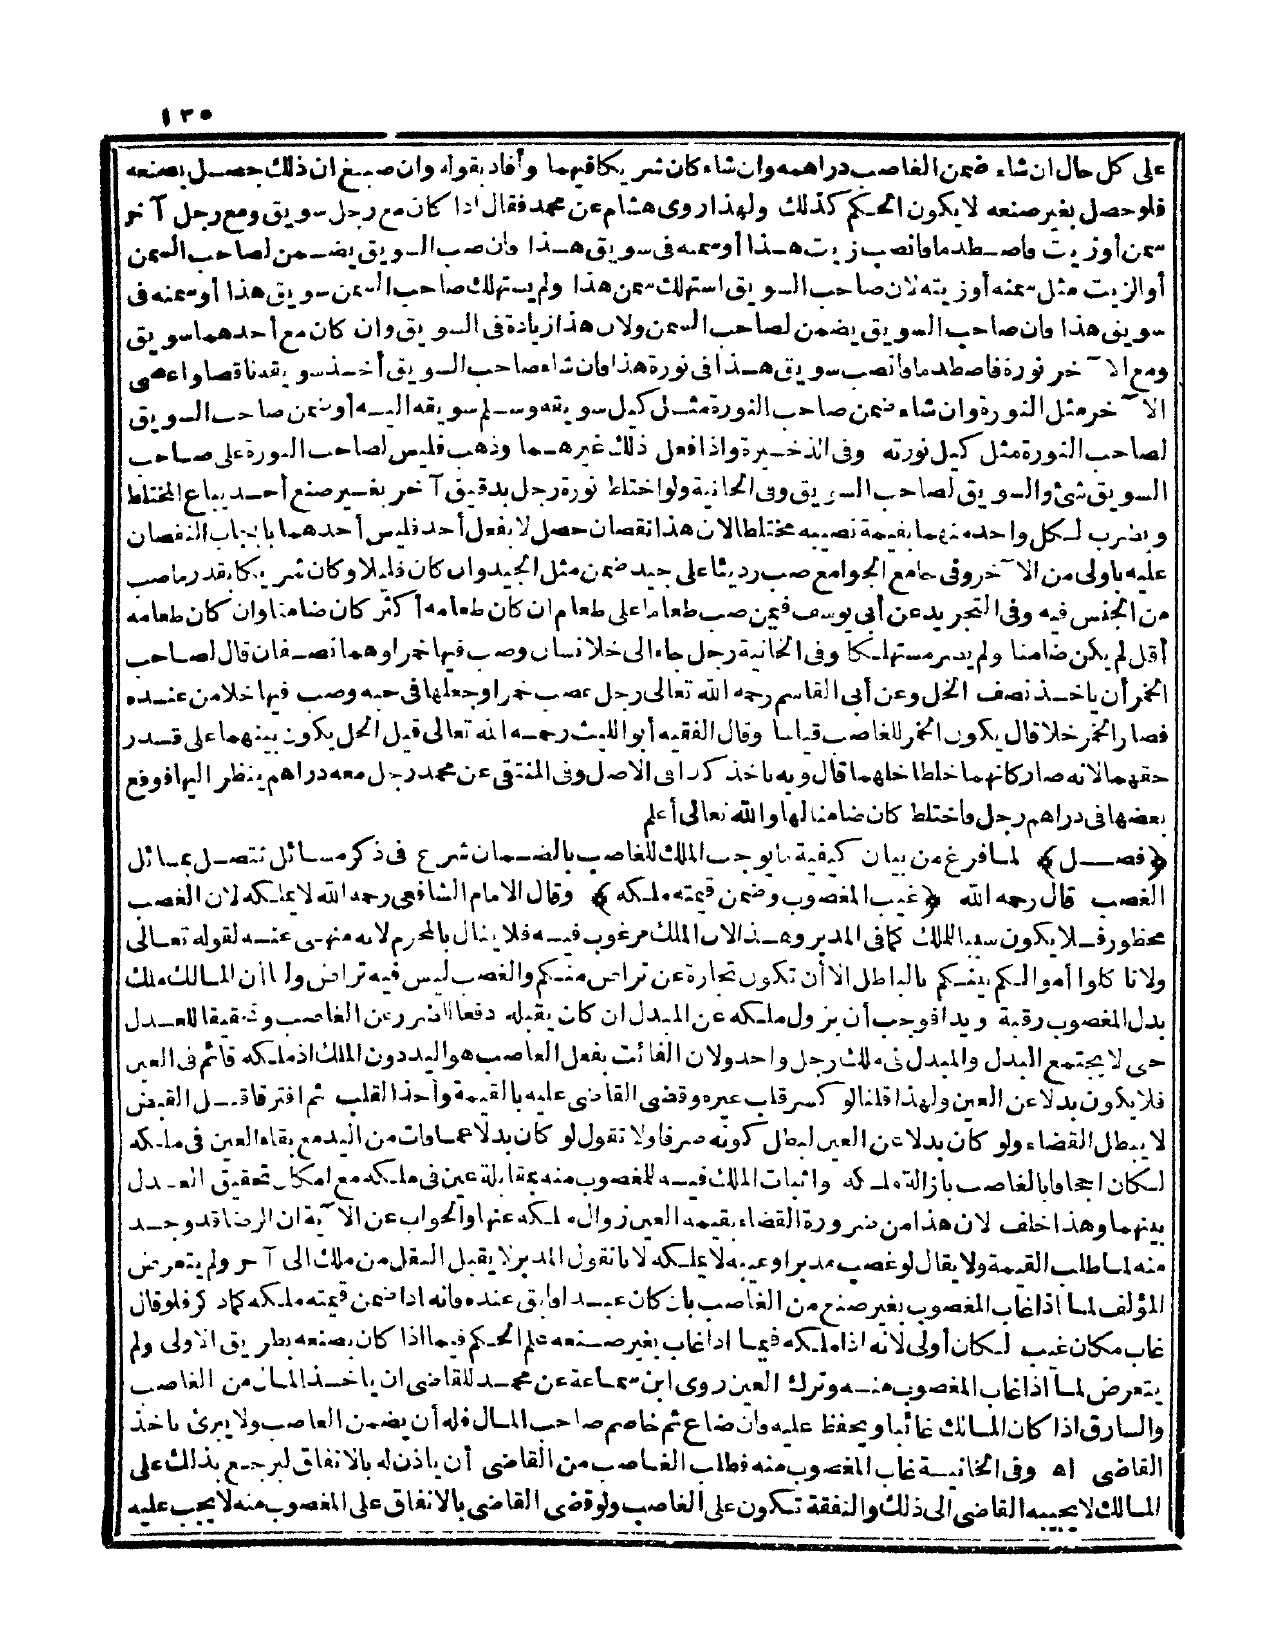 ١٣٥
على كل حال ان شاء ضمن الغاصب دراهمه وان شاء كان شريكا فيهما وأفاد بقوله وان صبغ ان ذلك حصل بصنعه
فلو حصل بغير صنعه لا يكون الحكم كذلك ولهذا روى هشام عن محمد فقال اذا كان مع رجل سويق ومع رجل آخر
سمن أو زيت فاصطدما فانصب زيت هذا أو سمنه فى سويق هذا فان صب السويق يضمن لصاحب السمن
أو الزيت مثل سمنه أو زيته لان صاحب السويق استهلك سمن هذا ولم يستهلك صاحب السمن سويق هذا أو سمنه فى
سويق هذا فان صاحب السويق يضمن لصاحب السمن ولان هذا زيادة فى السويق وان كان مع أحدهما سويق
ومع الآخر نورة فاصطدما فانصب سويق هذا فى نورة هذا فان شاء صاحب السويق أخذ سويقه ناقصا واعطى
الآخر مثل النورة وان شاء ضمن صاحب النورة مثل كيل سويقه وسلم سويقه اليه أو ضمن صاحب السويق
لصاحب النورة مثل كيل نورته وفى الذخيرة واذا فعل ذلك غيرهما وذهب فليس لصاحب النورة على صاحب
السويق شئ والسويق لصاحب السويق وفى الخانية ولو اختلط نورة رجل بدقيق آخر بغير صنع أحد يباع المختلط
ويضرب لكل واحد منهما بقيمة نصيبه مختلطا لان هذا نقصان حصل لا بفعل أحد فليس أحدهما بايجاب النقصان
عليه باولى من الآخر وفى جامع الجوامع صب رديئا على جيد ضمن مثل الجيد وان كان قليلا وكان شريكا بقدر ما صب
من الجنس فيه وفى التجريد عن أبى يوسف فيمن صب طعاما على طعام ان كان طعامه أكثر كان ضامنا وان كان طعامه
أقل لم يكن ضامنا ولم يصر مستهلكا وفى الخانية رجل جاء الى خلا نسان وصب فيها خمرا وهما نصفان قال لصاحب
الخمر أن ياخذ نصف الخل وعن أبى القاسم رحمه الله تعالى رجل غصب خمرا وجعلها فى حبه وصب فيها خلا من عنده
فصار الخمر خلا قال يكون الخمر للغاصب قياسا وقال الفقيه أبو الليث رحمه الله تعالى قيل الخل يكون بينهما على قدر
حقهما لانه صار كانهما خلطا خلهما قال وبه ياخذ كذا فى الاصل وفى المنتقى عن محمد رجل معه دراهم ينظر اليها فوقع
بعضها فى دراهم رجل فاختلط كان ضامنا لها والله تعالى أعلم
﴿فصل﴾ لما فرغ من بيان كيفية ما يوجب الملك للغاصب بالضمان شرع فى ذكر مسائل تتصل بمسائل
الغصب قال رحمه الله ﴿غيب المغصوب وضمن قيمته ملكه﴾ وقال الامام الشافعى رحمه الله لا يملكه لان الغصب
محظور فلا يكون سببا للملك كما فى المدبر وهذا لان الملك مرغوب فيه فلا ينال بالمحرم لانه منهى عنه لقوله تعالى
ولا تاكلوا أموالكم بينكم بالباطل الا أن تكون تجارة عن تراض منكم والغصب ليس فيه تراض ولنا أن المالك ملك
بدل المغصوب رقبة ويدا فوجب أن يزول ملكه عن المبدل ان كان يقبله دفعا للضرر عن الغاصب وتحقيقا للعدل
حتى لا يجتمع البدل والمبدل فى ملك رجل واحد ولان الفائت بفعل الغاصب هو اليد دون الملك اذ ملكه قائم فى العين
فلا يكون بدلا عن العين ولهذا قلنا لو كسر قلب غيره وقضى القاضى عليه بالقيمة وأخذ القلب ثم افترقا قبل القبض
لا يبطل القضاء ولو كان بدلا عن العين لبطل كونه صرفا ولا نقول لو كان بدلا عما فات من اليد مع بقاء العين فى ملكه
لكان اجحافا بالغاصب بازالة ملكه واثبات الملك فيه للمغصوب منه بمقابلة عين فى ملكه مع امكان تحقيق العدل
بينهما وهذا خلف لان هذا من ضرورة القضاء بقيمة العين زوال ملكه عنها والجواب عن الآية ان الرضا قد وجد
منه لما طلب القيمة ولا يقال لو غصب مدبرا وغيبه لا يملكه لانا نقول المدبر لا يقبل النقل من ملك الى آخر ولم يتعرض
المؤلف لما اذا غاب المغصوب بغير صنع من الغاصب بان كان عبدا وابق عنده فانه اذا ضمن قيمته ملكه كما ذكر فلو قال
غاب مكان غيب لكان أولى لانه اذا ملكه فيما اذا غاب بغير صنعه علم الحكم فيما اذا كان بصنعه بطريق الاولى ولم
يتعرض لما اذا غاب المغصوب منه وترك العين روى ابن سماعة عن محمد للقاضى ان ياخذ المال من الغاصب
والسارق اذا كان المالك غائبا ويحفظ عليه وان ضاع ثم خاصم صاحب المال فله أن يضمن الغاصب ولا يبرئ باخذ
القاضى اه وفى الخانية غاب المغصوب منه فطلب الغاصب من القاضى أن ياذن له بالانفاق ليرجع بذلك على
المالك لا يجيبه القاضى الى ذلك والنفقة تكون على الغاصب ولو قضى القاضى بالانفاق على المغصوب منه لا يجب عليه